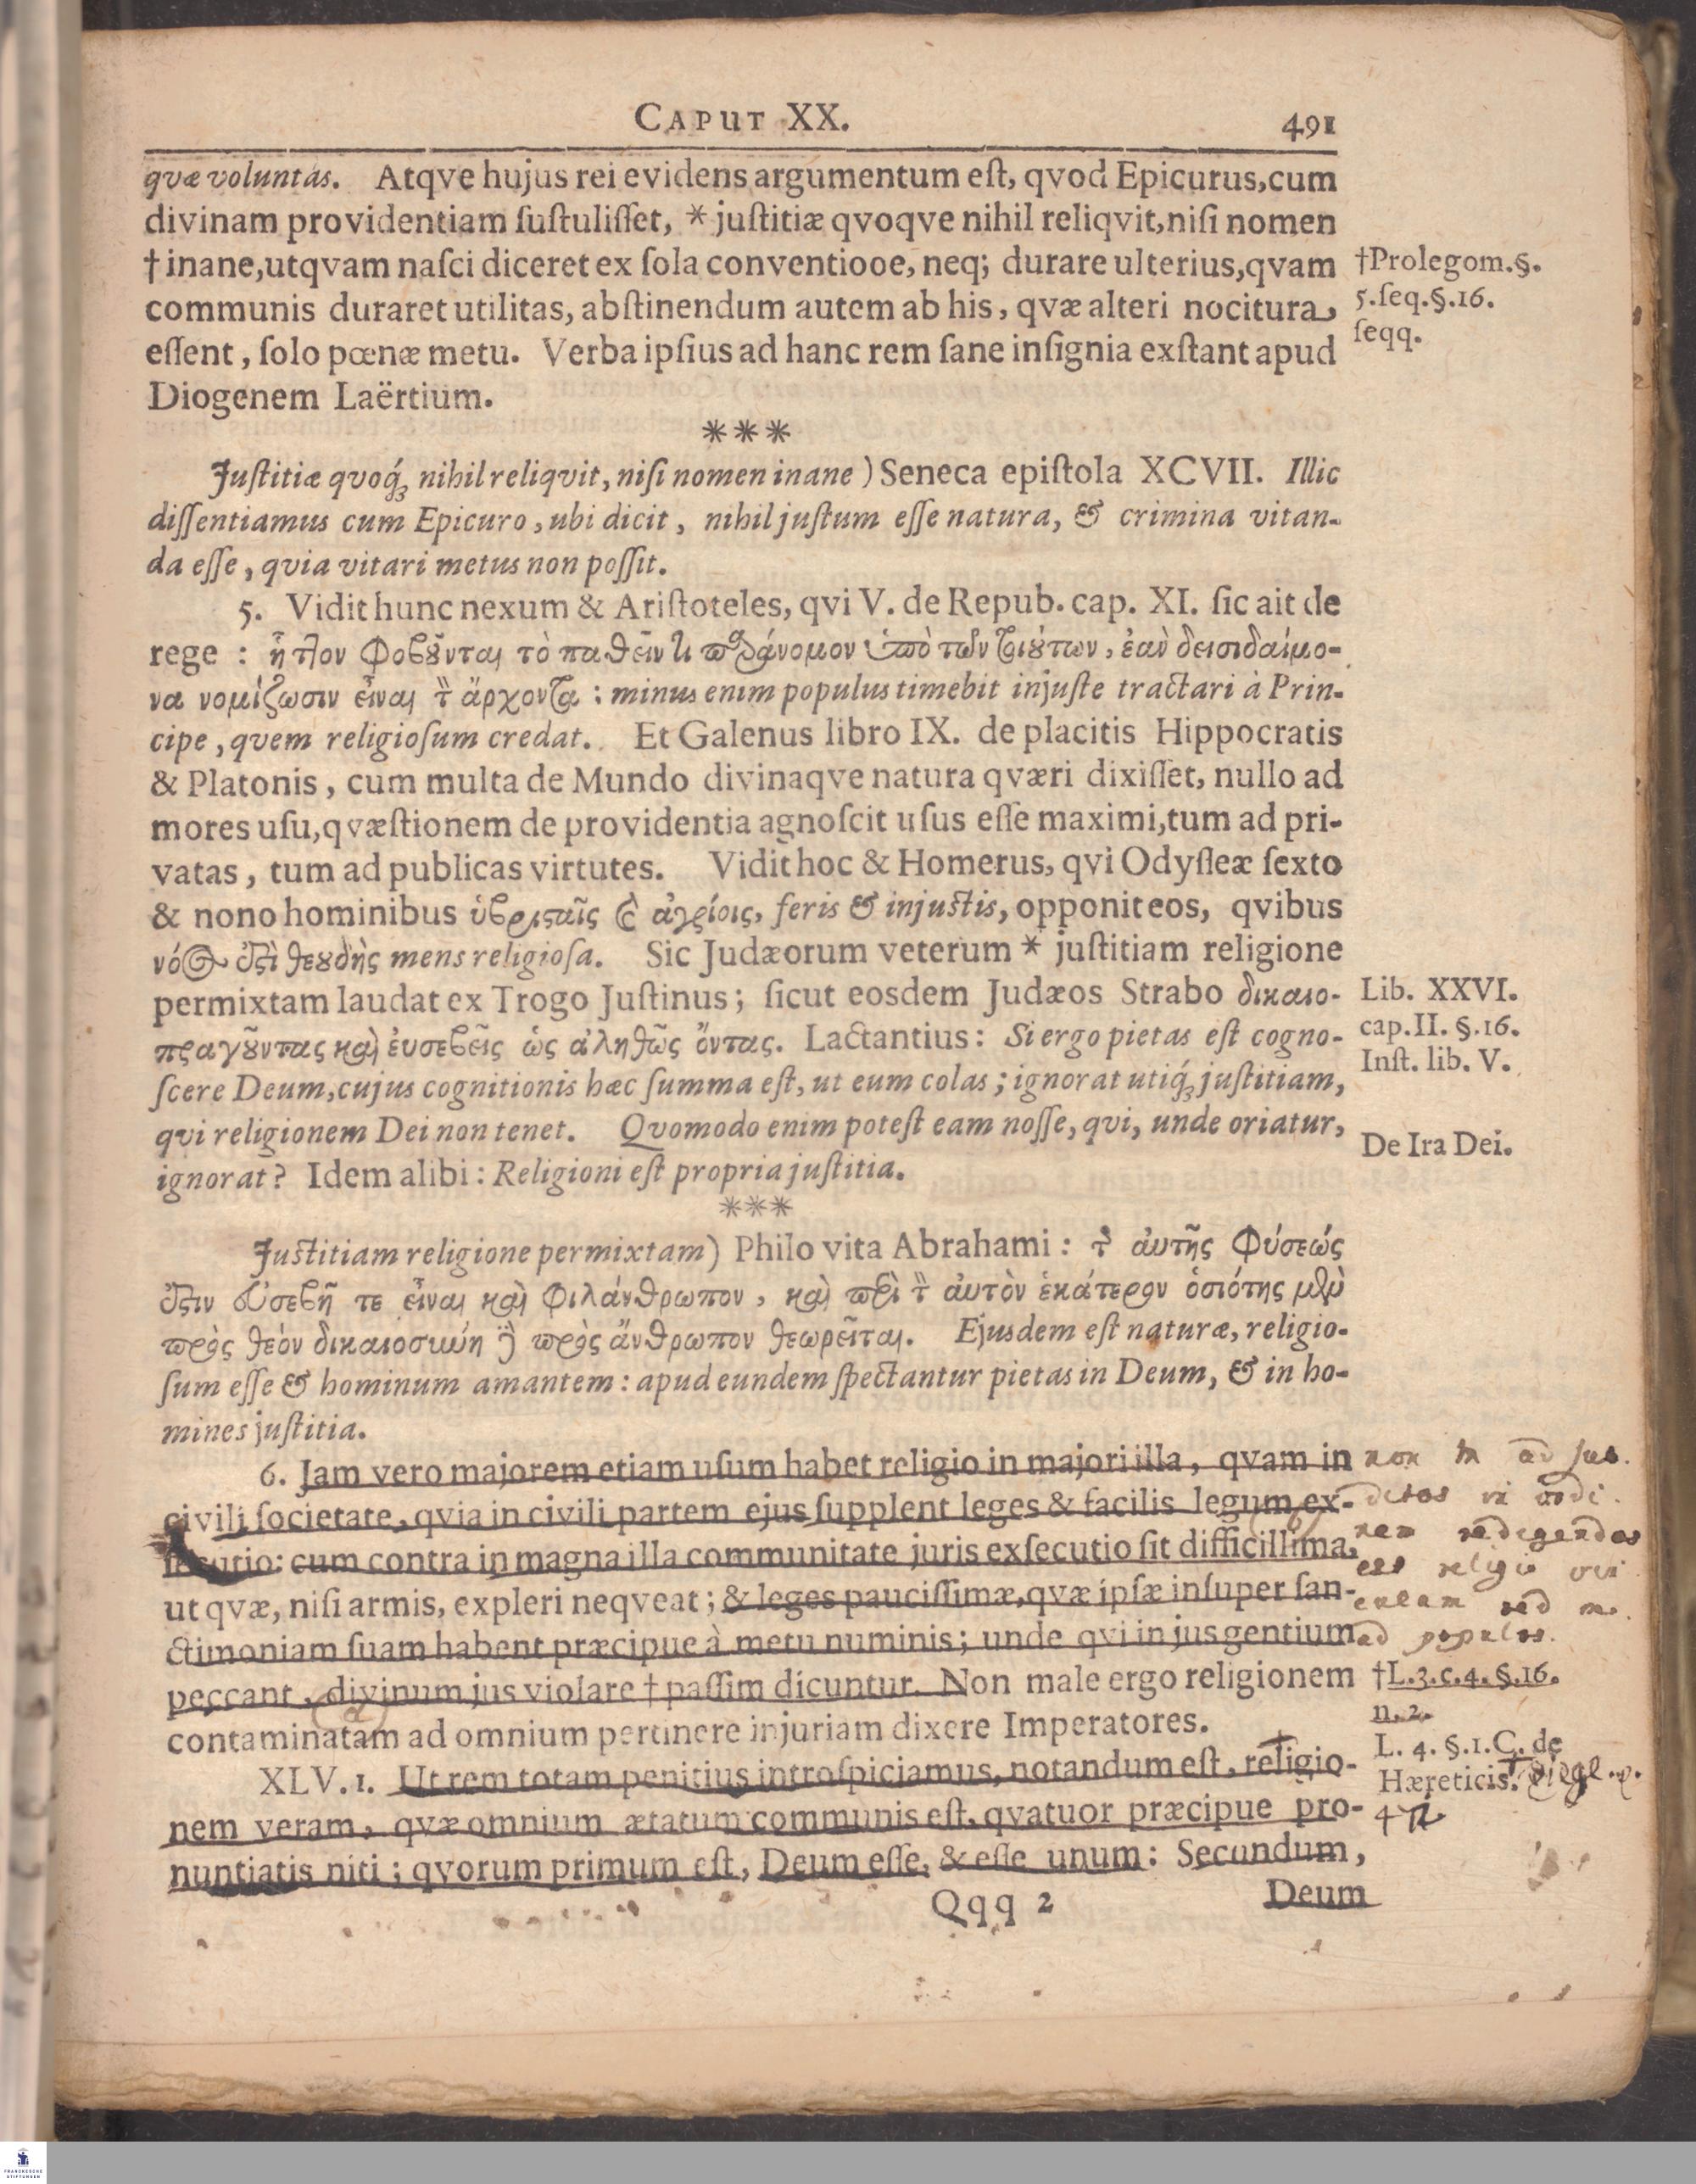 CAPUT XX. 491
qvæ voluntas. Atqve hujus rei evidens argumentum eſt, qvod Epicurus, cum
divinam providentiam ſuſtuliſſet, * juſtitiæ qvoqve nihil reliqvit, niſi nomen
† inane, utqvam naſci diceret ex ſola conventiooe, neq; durare ulterius, qvam
†Prolegom.§.
communis duraret utilitas, abſtinendum autem ab his, qvæ alteri nocitura
5.ſeq.§.16.
eſſent, ſolo pœnæ metu. Verba ipſius ad hanc rem ſane inſignia exſtant apud
ſeqq.
Diogenem Laërtium.
***
Juſtitiæ qvoq́; nihil reliqvit, niſi nomen inane ) Seneca epiſtola XCVII. Illic
diſſentiamus cum Epicuro, ubi dicit, nihil juſtum eſſe natura, & crimina vitan-
da eſſe, qvia vitari metus non poſſit.
5. Vidit hunc nexum & Ariſtoteles, qvi V. de Repub. cap. XI. ſic ait de
rege : ἧττον φοβοῦνται τὸ παθεῖν τι παράνομον ὑπὸ τῶν τοιούτων, ἐὰν δεισιδαίμο-
να νομίζωσιν εἶναι τὸν ἄρχοντα : minus enim populus timebit injuſte tractari à Prin-
cipe, qvem religioſum credat. Et Galenus libro IX. de placitis Hippocratis
& Platonis, cum multa de Mundo divinaqve natura qværi dixiſſet, nullo ad
mores uſu, qvæſtionem de providentia agnoſcit uſus eſſe maximi, tum ad pri-
vatas, tum ad publicas virtutes. Vidit hoc & Homerus, qvi Odyſſeæ ſexto
& nono hominibus ὑβρισταῖς καὶ ἀγρίοις, feris & injuſtis, opponit eos, qvibus
νόος ἐστὶ θεουδὴς mens religioſa. Sic Judæorum veterum * juſtitiam religione
permixtam laudat ex Trogo Juſtinus; ſicut eosdem Judæos Strabo δικαιο-
Lib. XXVI.
πραγοῦντας καὶ ἐυσεβεῖς ὡς ἀληθῶς ὄντας. Lactantius: Si ergo pietas eſt cogno-
cap.II. §.16.
Inſt. lib. V.
ſcere Deum, cujus cognitionis hæc ſumma eſt, ut eum colas; ignorat utiq́; juſtitiam,
qvi religionem Dei non tenet. Qvomodo enim poteſt eam noſſe, qvi, unde oriatur,
De Ira Dei.
ignorat? Idem alibi: Religioni eſt propria juſtitia.
***
Juſtitiam religione permixtam) Philo vita Abrahami: τῆς ἀυτῆς φύσεώς
ἐστιν εὐσεβῆ τε εἶναι καὶ φιλάνθρωπον, καὶ περὶ τὸν ἀυτὸν ἑκάτερον ὁσιότης μὲν
πρὸς θεὸν δικαιοσύνη δὲ πρὸς ἄνθρωπον θεωρεῖται. Ejusdem eſt naturæ, religio-
ſum eſſe & hominum amantem: apud eundem ſpectantur pietas in Deum, & in ho-
mines juſtitia.
6. Jam vero majorem etiam uſum habet religio in majori illa, qvam in
civili ſocietate, qvia in civili partem ejus ſupplent leges & facilis legum ex-
cutio: cum contra in magna illa communitate juris exſecutio ſit difficillima,
ut qvæ, niſi armis, expleri neqveat; & leges pauciſſimæ, qvæ ipſæ inſuper ſan-
ctimoniam ſuam habent præcipue à metu numinis; unde qvi in jus gentium
ad populos.
peccant, divinum jus violare † paſſim dicuntur. Non male ergo religionem
†L.3.c.4.§.16.
n.2.
contaminatam ad omnium pertinere injuriam dixere Imperatores.
L. 4. §.1.C. de
Hæreticis.
XLV. 1. Ut rem totam penitius introſpiciamus, notandum eſt, religio-
nem veram, qvæ omnium ætatum communis eſt, qvatuor præcipue pro-
nuntiatis niti; qvorum primum eſt, Deum eſſe, & eſſe unum: Secundum,
Qqq 2 Deum
FRANCKESCHE
STIFTUNGEN